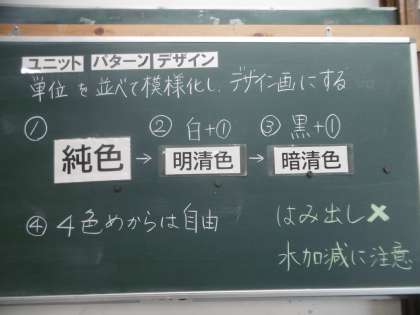 ユニット パターン デザイン
単位を並べて模様化し、デザイン画にする
① ② 白+① ③ 黒+①
純色 → 明清色 → 暗清色
④ 4色めからは自由
はみ出し×
水加減に注意